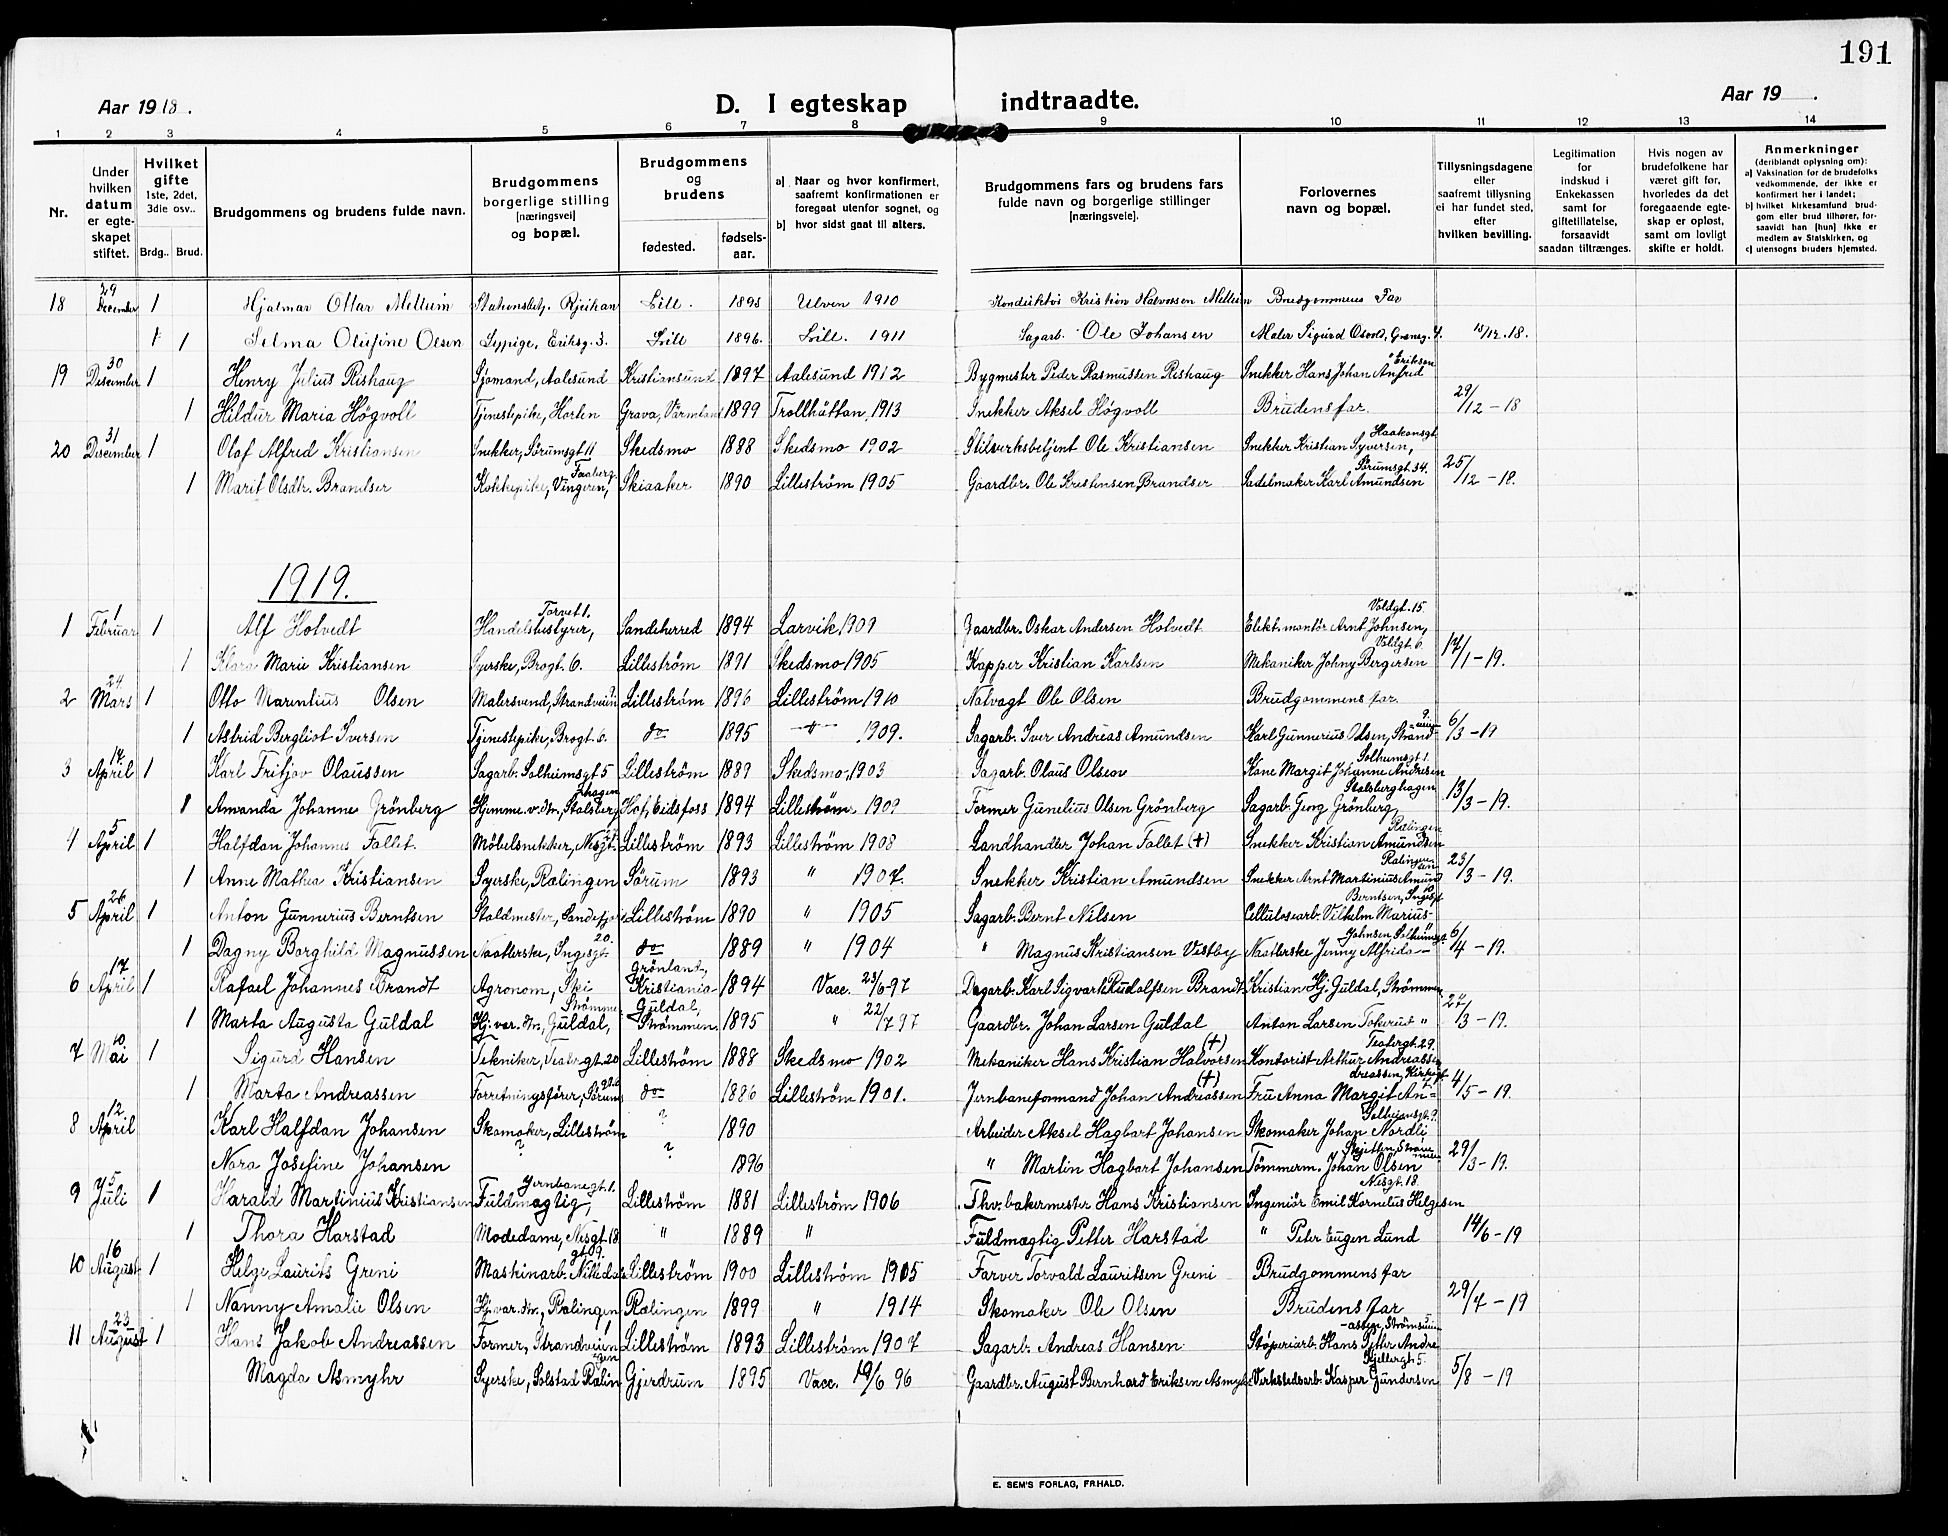 191
Aar 1918.
D. I egteskap indtraadte.
Aar 19 .
1 2 3 4 5 6 7 8 9 10 11 12 13 14
Nr.
Under hvilken datum er egte-skapet stiftet.
Hvilket gifte 1ste, 2det, 3die osv..
Brdg.. Brud.
Brudgommens og brudens fulde navn.
Brudgommens borgerlige stilling [næringsvei] og bopæl.
Brudgommens og brudens
fødested. fødsels-aar.
a] Naar og hvor konfirmert, saafremt konfirmationen er foregaat utenfor sognet, og
b] hvor sidst gaat til alters.
Brudgommens fars og brudens fars fulde navn og borgerlige stillinger [næringsveie].
Forlovernes navn og bopæl.
Tillysningsdagene eller saafremt tillysning ei har fundet sted, efter hvilken bevilling.
Legitimation for indskud i Enkekassen samt for giftetillatelse, forsaavidt saadan tiltrænges.
Hvis nogen av brudefolkene har været gift før, hvorledes da det foregaaende egte-skap er opløst, samt om lovligt skifte er holdt.
Anmerkninger (deriblandt oplysning om):
a] Vaksination for de brudefolks vedkommende, der ikke er konfirmert her i landet;
b] hvilket kirkesamfund brud-gom eller brud tilhører, for-saavidt han [hun] ikke er medlem av Statskirken, og
c] utensogns bruders hjemsted.
18 29 December 1 Hjalmar Ottar Mellum Stationsbetj. Rjukan Lill. 1898 Ulven 1910 Konduktør Kristian Halvorsen Mellum Brudgommens Far
1 Selma Olufine Olsen Sypige, Eriksg. 3. Lill 1896. Lill. 1911 Sagarb. Ole Johansen Maler Sigurd Osvold, 15/12.18.
19 30 Desember 1 Henry Julius Rishaug Sjømand, Aalesund Kristiansund 1897 Aalesund 1912 Bygmester Peder Rasmussen Rishaug Snekker Hans Johan Anfred Eriksen
1 Hildur Maria Høgvoll Tjenestepike, Horten Grava, Värmland 1899 Trollhättan, 1913 Snekker Aksel Høgvoll Brudens far. 29/12 - 18
20 31 Desember 1 Olaf Alfred Kristiansen Snekker, Sørumsgt 11 Skedsmo 1888 Skedsmo 1902 Ole Kristiansen Snekker Kristian Syversen, Haakonsgt
1 Marit Olsdtr. Brandser Kokkepike, Vingeren, Faaberg Skiaaker 1890 Lillestrøm 1905 Gaardbr. Ole Kristensen Brandser Sadelmaker Karl Amundsen Sørumsgt. 34. 25/12 - 18.
1919.
1 1 Februar 1 Alf Hotvedt Handelsbestyrer, Torvet 1. Sandeherred 1894 Larvik 1909 Gaardbr. Oskar Andersen Hotvedt Elekt. montør Arnt Johnsen, Voldgt. 15.
1 Klara Marie Kristiansen Syerske, Brogt. 6. Lillestrøm 1891 Skedsmo 1905 Kapper Kristian Karlsen Mekaniker Johny Bergersen Voldgt. 6. 17/1 - 19.
2 24 Mars 1 Otto Marentius Olsen Malersvend, Strandveien Lillestrøm 1896 Lillestrøm 1910 Natvagt Ole Olsen Brudgommens far.
1 Astrid Bergliot Iversen Tjenestepike, Brogt. 6. do 1895 — " — 1909. Sagarb. Iver Andreas Amundsen Karl Gunnerius Olsen, Strandveien 9. 6/3 - 19
3 14 April 1 Karl Fritjov Olaussen Sagarb. Solheimsgt 5 Lillestrøm 1889 Skedsmo, 1903 Sagarb. Olaus Olsen Kone Margit Johanne Andresen Solheimsgt 1.
1 Amanda Johanne Grönberg Hjemme v. dtr., Stalsberghagen Hof, Eidsfoss 1894 Lillestrøm 1909 Former Gunelius Olsen Grönberg Sagarb. Georg Grönberg, Stalsberghagen 13/3 - 19.
4 5 April 1 Halfdan Johannes Fallet. Møbelsnekker, Nesgt. Lillestrøm 1893 Lillestrøm 1908 Landhandler Johan Fallet (+) Snekker Kristian Amundsen Rælingen
1 Anne Mathea Kristiansen Syerske, Rælingen Sørum 1893 " 1907. Snekker Kristian Amundsen Snekker Arnt Martinius Amundsen Rælingen 23/3 - 19.
5 26 April 1 Anton Gunnerius Berntsen Staldmester, Sandefjord Lillestrøm 1890 " 1905 Sagarb. Bernt Nilsen Cellulosearb. Vilhelm Marius Berntsen, Ingesgt
1 Dagny Borghild Magnussen Naatlerske, Ingesgt. 20. do 1889 " 1904 " Magnus Kristiansen Vestby Naatlerske Jenny Alfrida Johnsen, Solheimsgt. 6/4 - 19.
6 17 April 1 Rafael Johannes Brandt Agronom, Ski Grönland, Kristiania 1894 Vacc. 23/6-97 Dagarb. Karl Sigvart Rudolfsen Brandt Kristian Hj. Guldal, Strømmen
1 Marta Augusta Guldal Hj. var. dtr., Guldal, Strømmen Guldal, Strømmen 1895 " 22/7 97 Gaardbr. Johan Larsen Guldal Anton Larsen Tokerud " 27/3 - 19.
7 10 Mai 1 Sigurd Hansen Tekniker, Teatergt. 20 Lillestrøm 1888 Skedsmo 1902 Mekaniker Hans Kristian Halvorsen (+) Kontorist Arthur Andreassen Teatergt. 29.
1 Marta Andreassen Forretningsfører, Sørumsgt. do 1886 Lillestrøm 1901. Jernbaneformand Johan Andreassen (+) Fru Anna Margit Andreassen, Kirkegt 4/5 - 19.
8 12 April Karl Halfdan Johansen Skomaker, Lillestrøm ? 1890 Arbeider Aksel Hagbart Johansen Skomaker Johan Nordli Solheimsgt. 9.
Nora Josefine Johansen ? ? 1896 " Martin Hagbart Johansen Tømmerm. Johan Olsen Skjetten, Strømmen 29/3 - 19.
9 5 Juli 1 Harald Martinius Kristiansen Fuldmægtig, Jernbanegt. 1. Lillestrøm 1881 Lillestrøm 1906 Fhv. bakermester Hans Kristiansen Ingeniør Emil Kornelius Helgesen Nesgt. 18.
1 Thora Harstad Modedame, Nesgt. 18 " 1889 " Fuldmægtig Petter Harstad " Peter Eugen Lund 14/6 - 19
10 16 August 1 Helge Laurits Greni Maskinarb. Nittedalsgt 9. Lillestrøm 1900 Lillestrøm 1915 Farver Torvald Lauritsen Greni Brudgommens far
1 Nanny Amalie Olsen Hj. var. dtr., Rælingen Rælingen 1899 " 1914 Skomaker Ole Olsen Brudens far 29/7 - 19
11 23 August 1 Hans Jakob Andreassen Former, Strandveien 1 Lillestrøm 1893 Lillestrøm 1907 Sagarb. Andreas Hansen Støperiarb. Hans Petter Andreassen, Strømsveien
Magda Asmyhr Syerske, Solstad Rælingen Gjerdrum 1895 Vacc. 19/6 96 Gaardbr. August Bernhard Eriksen Asmyhr Verkstedsarb. Kasper Gundersen Kjellergt. 5. 5/8 - 19
E. SEM'S FORLAG, FR.HALD.